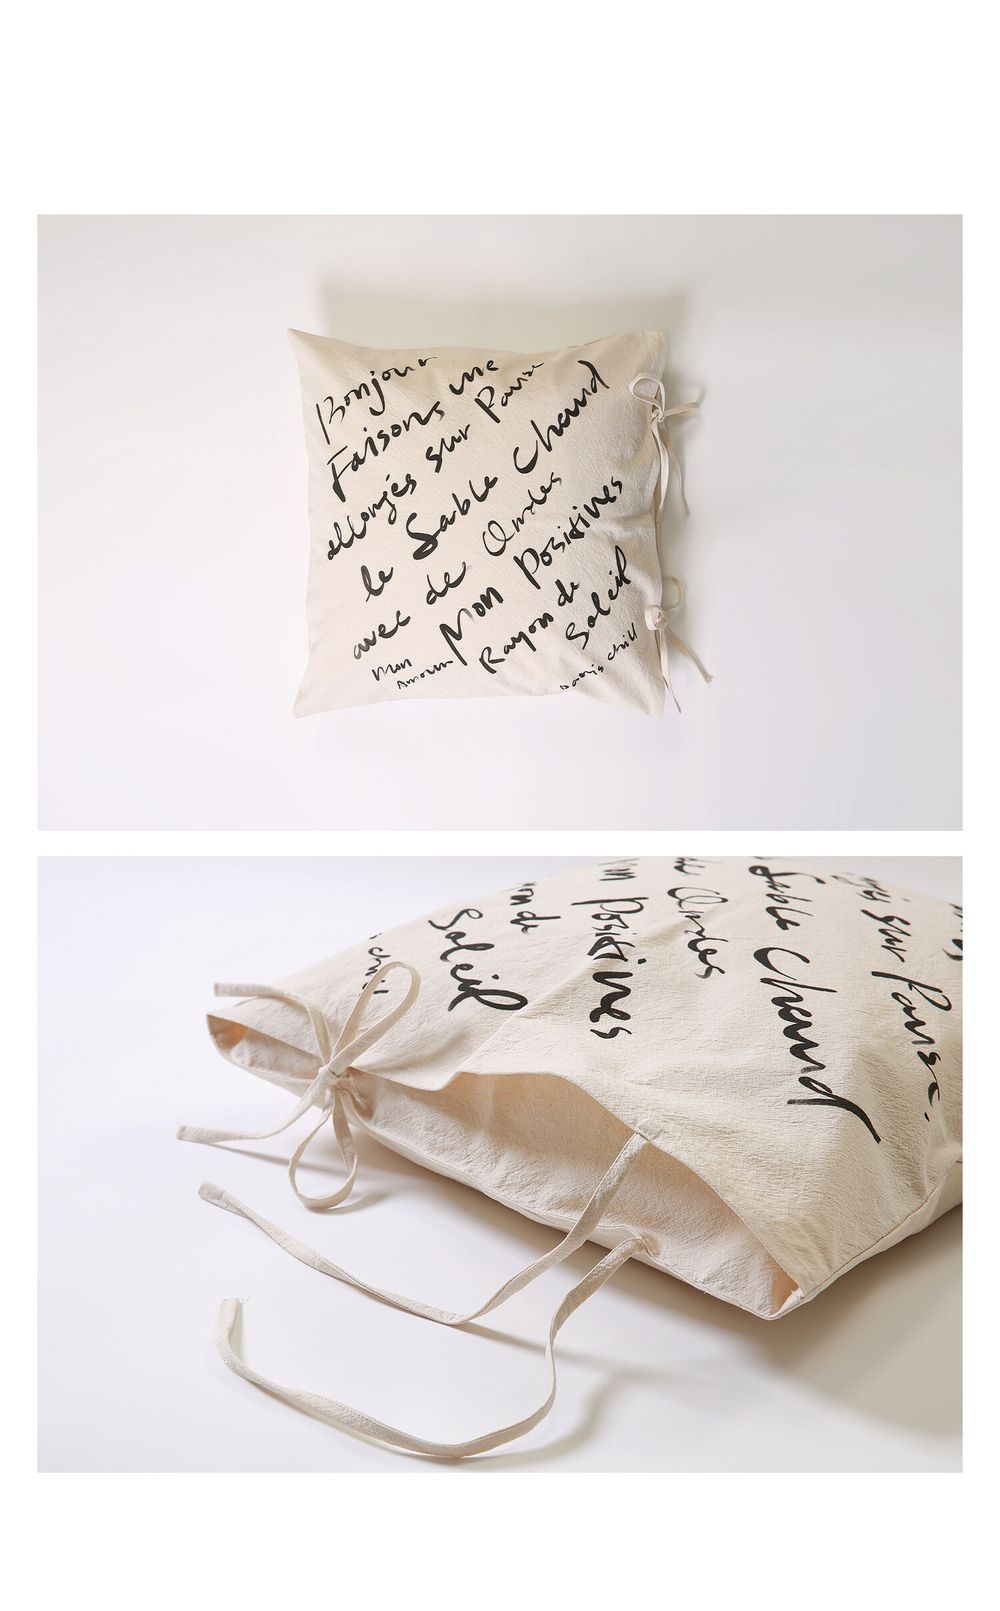 Bonjour
Faisons une
allongés sur Pause
le Sable Chaud
avec de Ondes
Mon Positives
Rayon de
Soleil
Mon
Amour
Paris chill
Soleil
Positives
Ondes
Sable Chaud
sur Pause.